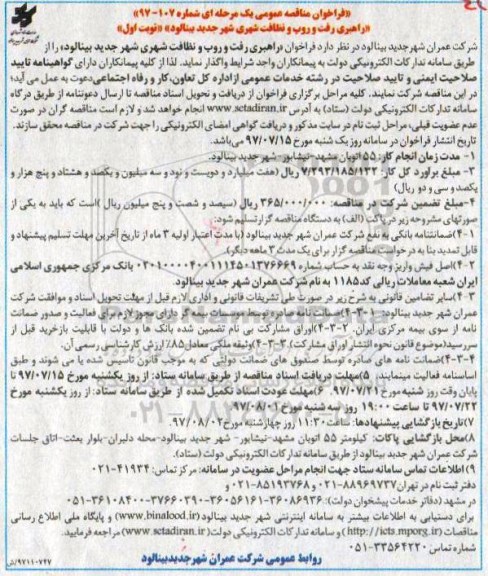 «فراخوان مناقصه عمومی یک مرحله ای شماره ۱۰۷-۹۷»
«راهبری رفت و روب و نظافت شهری شهر جدید بینالود» «نوبت اول»
شرکت عمران شهر جدید بینالود در نظر دارد فراخوان «راهبری رفت و روب و نظافت شهری شهر جدید بینالود» را از
طریق سامانه تدارکات الکترونیکی دولت به پیمانکاران واجد شرایط واگذار نماید. لذا از کلیه پیمانکاران دارای گواهینامه تایید
صلاحیت ایمنی و تایید صلاحیت در رشته خدمات عمومی از اداره کل تعاون، کار و رفاه اجتماعی دعوت به عمل می آید؛
در این مناقصه شرکت نمایند. کلیه مراحل برگزاری فراخوان از دریافت و تحویل اسناد مناقصه تا ارسال دعوتنامه از طریق درگاه
سامانه تدارکات الکترونیکی دولت (ستاد) به آدرس www.setadiran.ir انجام خواهد شد و لازم است مناقصه گران در صورت
عدم عضویت قبلی، مراحل ثبت نام در سایت مذکور و دریافت گواهی امضای الکترونیکی را جهت شرکت در مناقصه محقق سازند.
تاریخ انتشار فراخوان در سامانه روز یک شنبه مورخ ۹۷/۰۷/۱۵ می باشد.
۱- مدت زمان انجام کار: ۵۵ اتوبان مشهد-نیشابور- شهر جدید بینالود.
۳- مبلغ برآورد کل کار: ۷/۲۹۳/۱۸۵/۱۳۲ ریال (هفت میلیارد و دویست و نود و سه میلیون و یکصد و هشتاد و پنج هزار و
یکصد و سی و دو ریال)
۴- مبلغ تضمین شرکت در مناقصه: ۳۶۵/۰۰۰/۰۰۰ ریال (سیصد و شصت و پنج میلیون ریال) است که باید به یکی از
صورتهای مشروحه زیر در پاکت (الف) به دستگاه مناقصه گزار تسلیم شود:
۴-۱) ضمانتنامه بانکی به نفع شرکت عمران شهر جدید بینالود (با مدت اعتبار اولیه ۳ ماه از تاریخ آخرین مهلت تسلیم پیشنهاد و
قابل تمدید بنا به درخواست مناقصه گزار برای یک مدت ۳ ماهه دیگر).
۴-۲) اصل فیش واریز وجه نقد به حساب شماره بانک مرکزی جمهوری اسلامی
ایران شعبه معاملات ریالی کد ۱۱۸۵ به نام شرکت عمران شهر جدید بینالود.
۴-۳) سایر تضامین قانونی به شرح زیر در صورت طی تشریفات قانونی و اداری لازم قبل از مهلت تحویل اسناد و موافقت شرکت
عمران شهر جدید بینالود: ۴-۳-۱) ضمانت نامه صادره توسط موسسات بیمه گر دارای مجوز لازم برای فعالیت و صدور ضمانت
نامه از سوی بیمه مرکزی ایران. ۴-۳-۲) اوراق مشارکت بی نام تضمین شده بانک ها و دولت با قابلیت بازخرید قبل از
سررسید (موضوع قانون نحوه انتشار اوراق مشارکت) ۴-۳-۳) وثیقه ملکی معادل ۸۵٪ ارزش کارشناسی رسمی آن.
۴-۳-۴) ضمانت نامه های صادره توسط صندوق های ضمانت دولتی که به موجب قانون تاسیس شده یا می شوند و طبق
اساسنامه فعالیت مینمایند. ۵) مهلت دریافت اسناد مناقصه از طریق سامانه ستاد: از روز یکشنبه مورخ ۹۷/۰۷/۱۵ تا
پایان وقت روز شنبه مورخ ۹۷/۰۷/۲۱. ۶) مهلت عودت اسناد تکمیل شده از طریق سامانه ستاد: از روز یکشنبه مورخ
۹۷/۰۷/۲۲ تا ساعت ۱۹:۰۰ روز سه شنبه مورخ ۹۷/۰۸/۰۱.
۷) تاریخ بازگشایی پیشنهادها: ساعت ۱۱:۳۰ روز چهارشنبه مورخ ۹۷/۰۸/۰۲.
۸) محل بازگشایی پاکات: کیلومتر ۵۵ اتوبان مشهد-نیشابور- شهر جدید بینالود-محله دلیران-بلوار بعثت-اتاق جلسات
شرکت عمران شهر جدید بینالود از طریق سامانه تدارکات الکترونیکی دولت (ستاد).
۹) اطلاعات تماس سامانه ستاد جهت انجام مراحل عضویت در سامانه: مرکز تماس: ۴۱۹۳۴-۰۲۱
دفتر ثبت نام در تهران ۸۸۹۶۹۷۳۷ و ۸۵۱۹۳۷۶۸-۰۲۱ و
در مشهد (دفاتر خدمات پیشخوان دولت): ۳۶۰۸۶۹۳۶-۳۶۰۵۶۱۶۱-۳۷۶۶۰۳۹۰-۳۶۱۰۸۴۰۰-۰۵۱
برای دستیابی به اطلاعات بیشتر به سامانه اینترنتی شهر جدید بینالود (www.binalood.ir) و پایگاه ملی اطلاع رسانی
مناقصات (http://iets.mporg.ir) و سامانه تدارکات الکترونیکی دولت (www.setadiran.ir) مراجعه فرمایید.
شماره تماس ۳۳۵۶۴۲۲۰-۰۵۱
روابط عمومی شرکت عمران شهر جدید بینالود